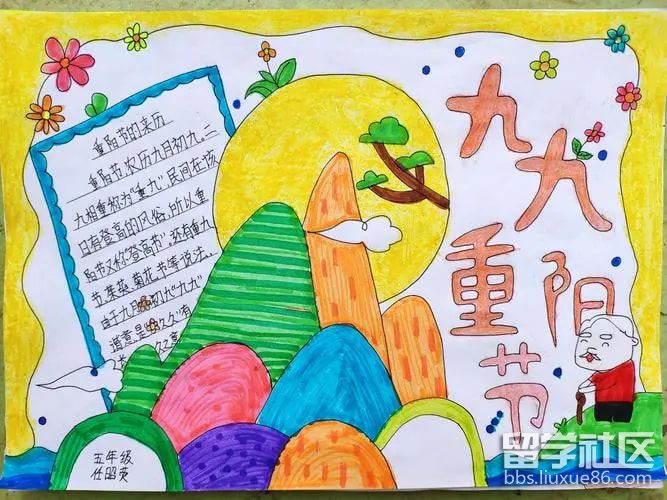 重阳节的来历
重阳节,农历九月初九。二
九相重称为“重九”,民间在该
日有登高的风俗,所以重
阳节又称“登高节”,还有重九
节、茱萸、菊花节等说法。
由于九月初九“九九”
谐音是“久久”有
九九重阳节
五年级
任昭英
留学社区
bbs.liuxue86.com